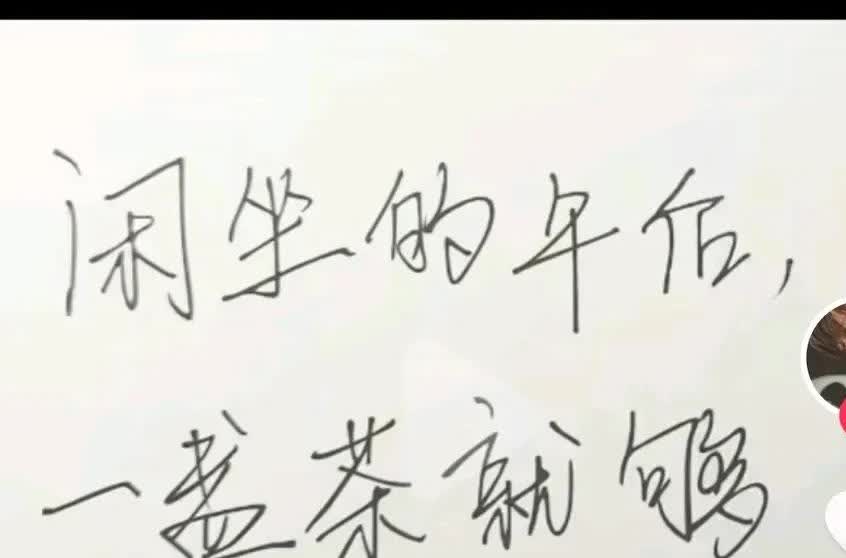 闲坐的午后，
一盏茶就够